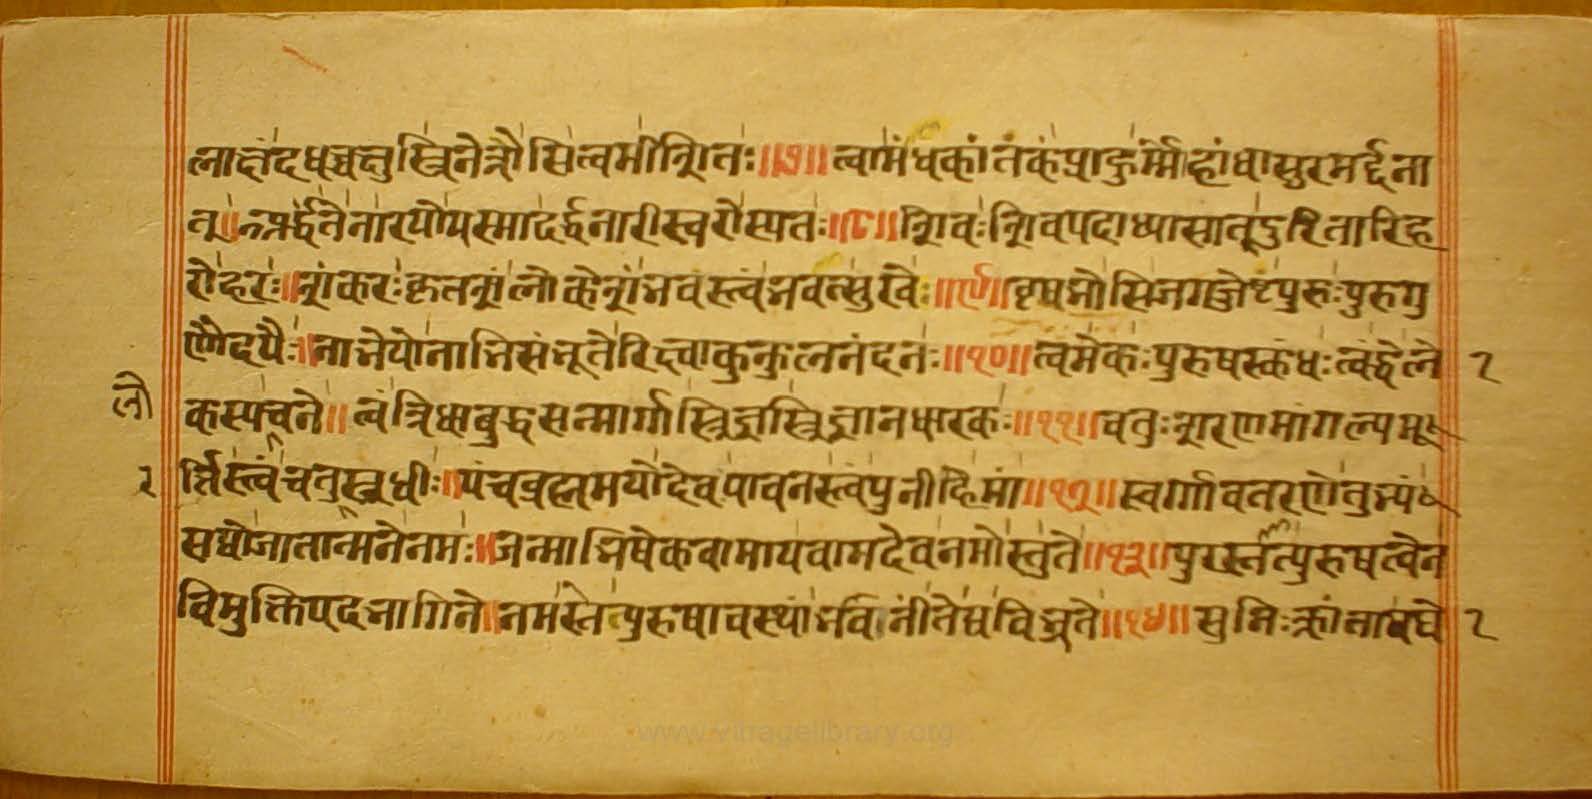 लाक्षं दधच्चक्षुस्त्रिनेत्रोसि त्वमीशितः॥७॥ त्वामंधकांतकं प्राहुर्म्मोहांधासुरमर्द्दना
त्॥ नार्द्धं ते नारयो यस्मादर्द्धनारीस्वरोस्पतः॥८॥ शिवः शिवपदाध्यासात् दुरितारिह
रो हरः॥ शंकरः कृतशं लोके शंभवस्त्वं भवत्सुखे॥९॥ वृषभोसि जगज्जेष्टः पुरुः पुरुगु
णोदयैः॥ नाभेयो नाभिसंभूतेरिक्ष्वाकुकुलनंदनः॥१०॥ त्वमेकः पुरुषस्कंधः त्वं द्वे ले २
लो
कस्प चने॥ त्वं त्रिधा बुद्धसन्मार्गस्त्रिज्ञस्त्रिज्ञानधारकः॥११॥ चतुःशरणमांगल्पमू
२ र्त्तिस्त्वं चतुस्त्रधीः॥ पंचब्रह्नमयो देव पावनस्त्वं पुनीहि मां॥१२॥ स्वर्गावतरणे तुभ्यं
सद्योजातात्मने नमः॥ जन्माभिषेकवामाय वामदेव नमोस्तुते॥१३॥ पुरस्तत्पुरुषत्वेन
विमुक्तिपदभागिने॥ नमस्तेत्पुरुषाचस्थां भविनीं तेघ विभ्रते॥१४॥ सुनिःक्रांता घे २
www.virragelibrary.org